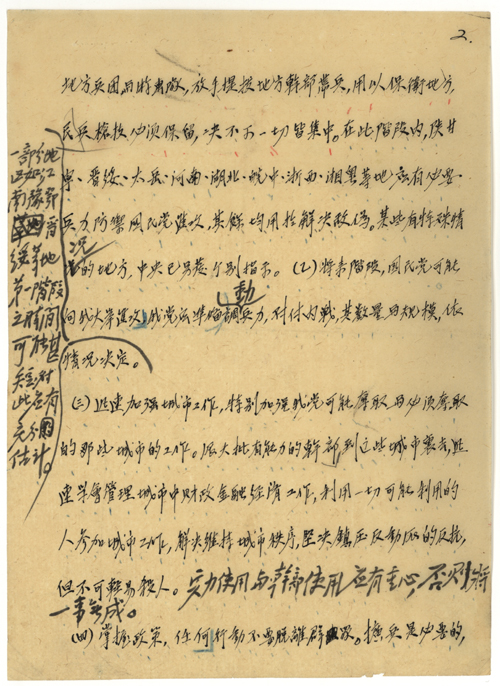 2.
地方兵团与游击队，放手提拔地方幹部带兵，用以保衛地方，
民兵槍枝必须保留，决不可一切皆集中。在此階段内，陕甘
寧、晋绥、太岳、河南、湖北、皖中、浙西、湘粤等地应有必要
兵力防禦國民党進攻，其餘均用於解决敌伪。某些有特殊情
况的地方，中央已另有个别指示。（2）将来階段，國民党可能
向我大举進攻，我党应準備調動兵力，对付内战，其數量與规模，依
情况决定。
一部分地
区如江
南豫鄂
晋
绥等地
第一階段
之時间
可能甚
短，对
此应有
充分
估计。
（三）迅速加强城市工作，特别加强我党可能奪取与必须奪取
的那些城市的工作。派大批有能力的幹部，到这些城市裏去，迅
速学會管理城市中财政金融经濟工作，利用一切可能利用的
人参加城市工作，解决维持城市秩序，坚决镇压反动派的反抗，
但不可輕易殺人。实力使用与幹部使用应有重心，否则将
一事無成。
（四）掌握政策，任何行动不要脱離群眾。擴兵是必要的，